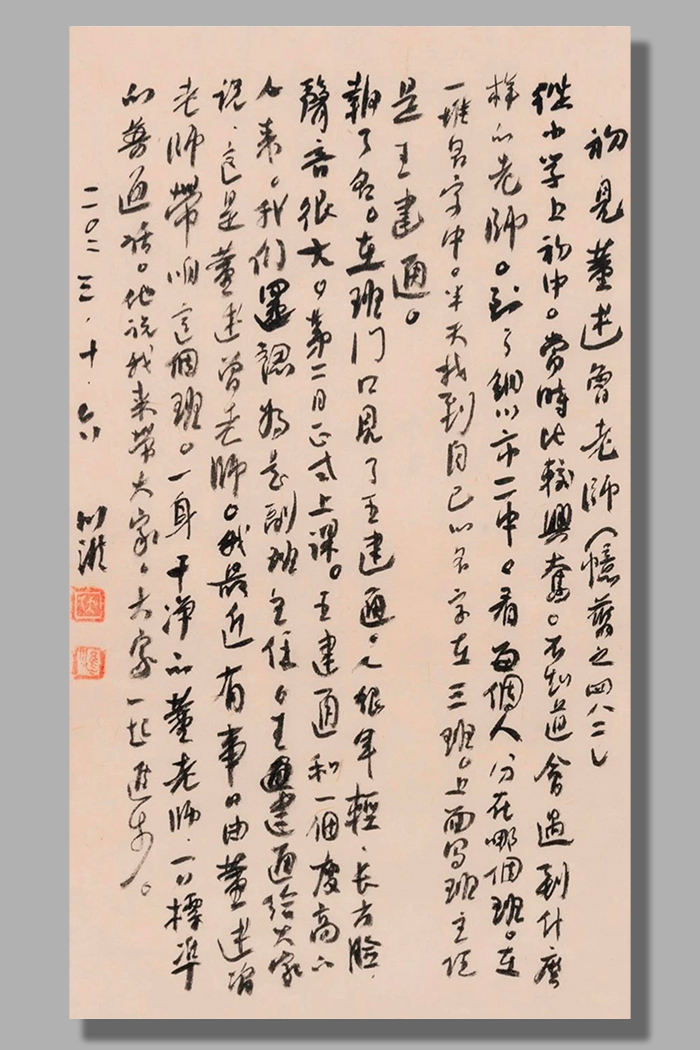 初見董建魯老師（憶舊之四八二）
從小学上初中。當時比較興奮。不知道會遇到什麼
樣的老師。到了銅川市二中。看每個人分在哪個班。在
一堆名字中。半天找到自己的名字在三班。上面写班主任
是王建通。
報了名。在班门口見了王建通。人很年輕、长方脸、
聲音很大。第二日正式上課。王建通和一個瘦高个
人来。我们還認为是副班主任。王建通给大家
说、这是董建魯老師。我最近有事。由董建魯
老師帶咱这個班。一身干净的董老師、一口標準
的普通话。他说我来带大家、大家一起進步。
二〇二三.十.六